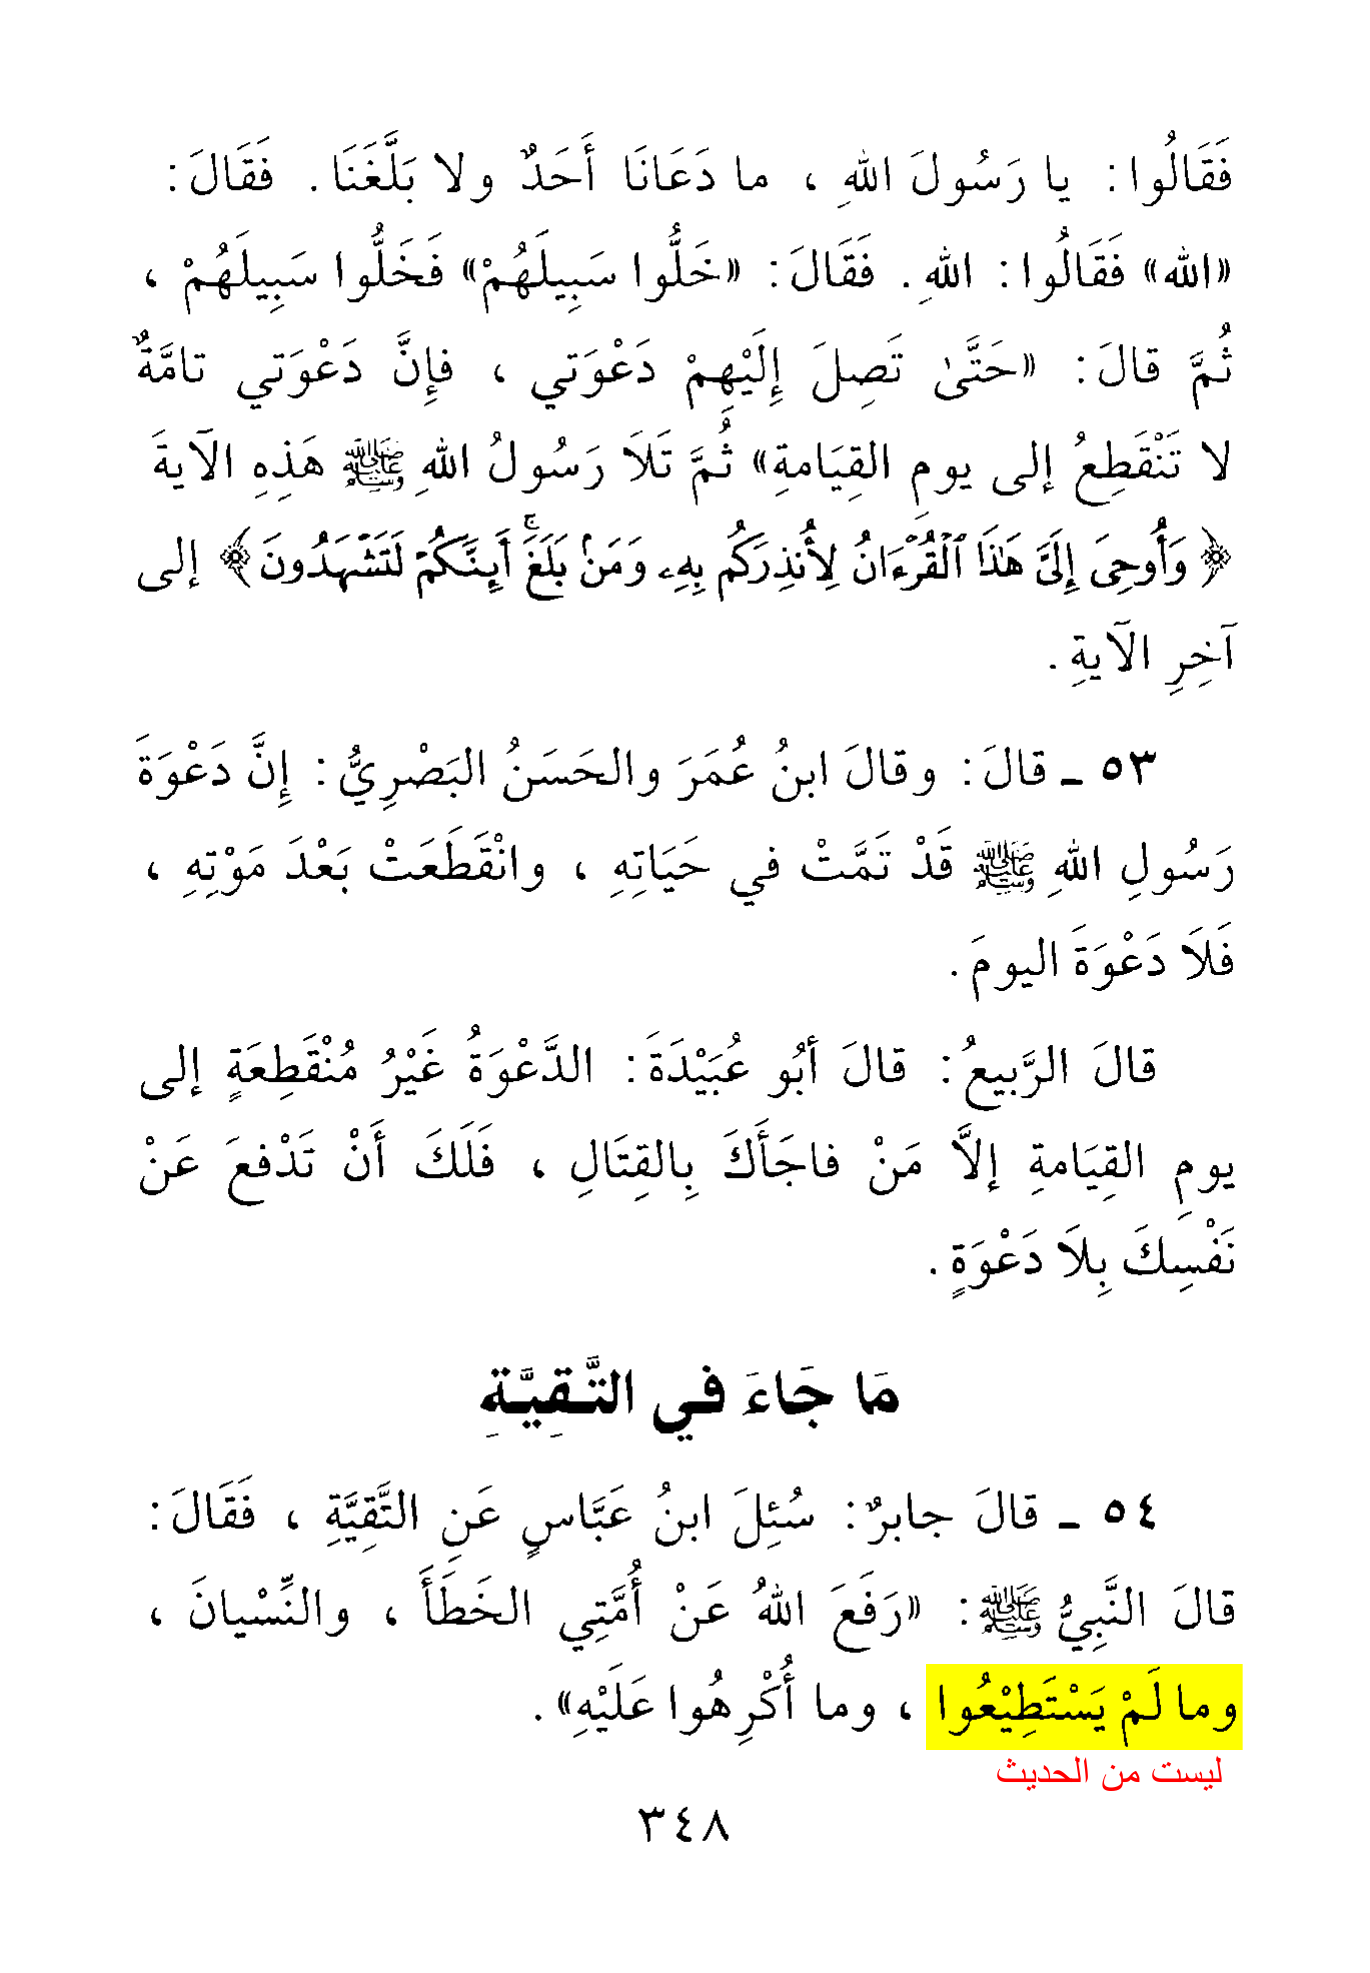 فَقَالُوا: يا رَسُولَ اللهِ ، ما دَعَانَا أَحَدٌ ولا بَلَّغَنَا. فَقَالَ:
«الله» فَقَالُوا: اللهِ. فَقَالَ: «خَلُّوا سَبِيلَهُمْ» فَخَلُّوا سَبِيلَهُمْ ،
ثُمَّ قالَ: «حَتَّىٰ تَصِلَ إِلَيْهِمْ دَعْوَتي ، فإِنَّ دَعْوَتي تامَّةٌ
لا تَنْقَطِعُ إلى يومِ القِيَامةِ» ثُمَّ تَلَا رَسُولُ اللهِ ﷺ هَذِهِ الآيةَ
﴿وَأُوحِىَ إِلَىَّ هَٰذَا ٱلْقُرْءَانُ لِأُنذِرَكُم بِهِۦ وَمَنۢ بَلَغَۚ أَئِنَّكُمْ لَتَشْهَدُونَ﴾ إلى
آخِرِ الآيةِ.
٥٣ ـ قالَ: وقالَ ابنُ عُمَرَ والحَسَنُ البَصْرِيُّ: إِنَّ دَعْوَةَ
رَسُولِ اللهِ ﷺ قَدْ تَمَّتْ في حَيَاتِهِ ، وانْقَطَعَتْ بَعْدَ مَوْتِهِ ،
فَلَا دَعْوَةَ اليومَ.
قالَ الرَّبيعُ: قالَ أبُو عُبَيْدَةَ: الدَّعْوَةُ غَيْرُ مُنْقَطِعَةٍ إلى
يومِ القِيَامةِ إلَّا مَنْ فاجَأَكَ بِالقِتَالِ ، فَلَكَ أَنْ تَدْفعَ عَنْ
نَفْسِكَ بِلَا دَعْوَةٍ.
مَا جَاءَ في التَّقِيَّةِ
٥٤ ـ قالَ جابرٌ: سُئِلَ ابنُ عَبَّاسٍ عَنِ التَّقِيَّةِ ، فَقَالَ:
قالَ النَّبِيُّ ﷺ: «رَفَعَ اللهُ عَنْ أُمَّتِي الخَطَأَ ، والنِّسْيانَ ،
وما لَمْ يَسْتَطِيْعُوا ، وما أُكْرِهُوا عَلَيْهِ».
ليست من الحديث
٣٤٨